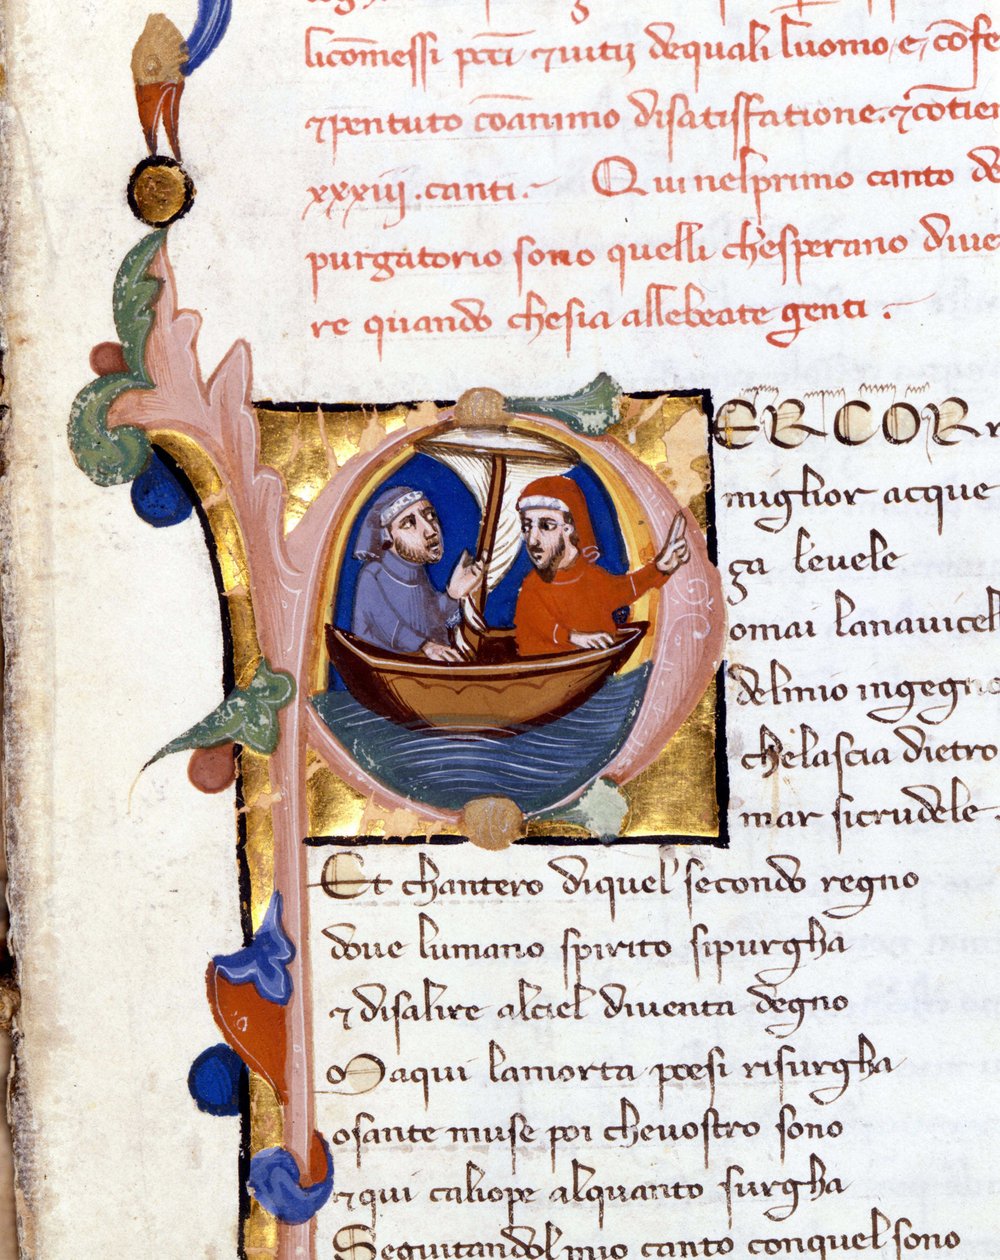 licom̄essi pc̄ti ⁊uitij dequali luomo, e, cōfe
⁊pentuto cōanimo disatisffatione. ⁊cōtien
xxxiij. canti. Qui nelprimo canto de
purgatorio sono quelli ch'esperano diue
re quando chesia allebeate genti.
PER COR
miglior acque
ga leuele
omai lanauicel
delmio ingegno
chelascia dietro
mar sicrudele.
Et chantero diquel secondo regno
doue lumano spirito sipurgha
⁊disalire alciel diuenta degno
Maqui lamorta poesi risurgha
osante muse poi cheuostro sono
⁊qui caliope alquanto surgha
Seguitandol mio canto conquel sono